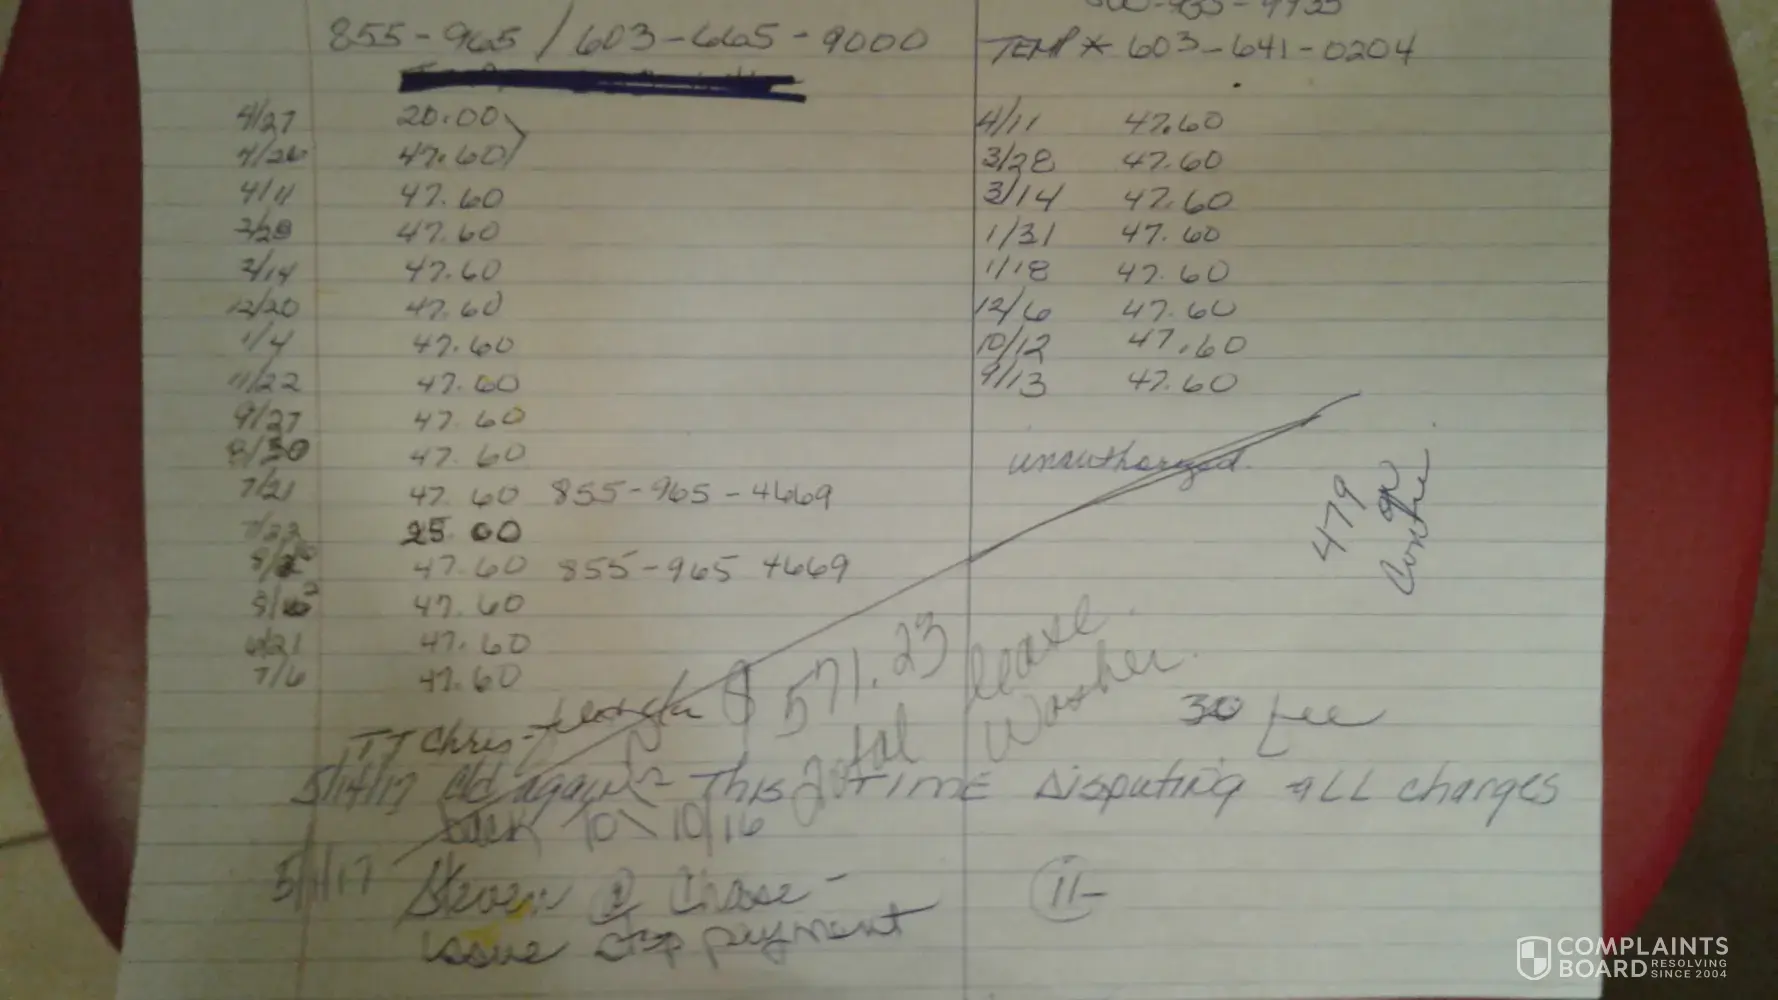 855-965 / 603-665-9000
TEMP * 603-641-0204
4/27 20.00
4/26 47.60
4/11 47.60
3/28 47.60
3/14 47.60
12/20 47.60
1/4 47.60
11/22 47.60
9/27 47.60
8/30 47.60
7/21 47.60 855-965-4669
25.00
47.60 855-965 4669
47.60
6/21 47.60
7/6 47.60
4/11 47.60
3/28 47.60
3/14 47.60
1/31 47.60
1/18 47.60
12/6 47.60
10/12 47.60
9/13 47.60
unauthorized.
479
$571.23 lease
total Washer.
30 fee
TT Chris-
5/14/17 again - This TIME Disputing ALL charges
back to 10/16
Steven @ Chase -
issue stop payment
11-
COMPLAINTS
BOARD RESOLVING
SINCE 2004